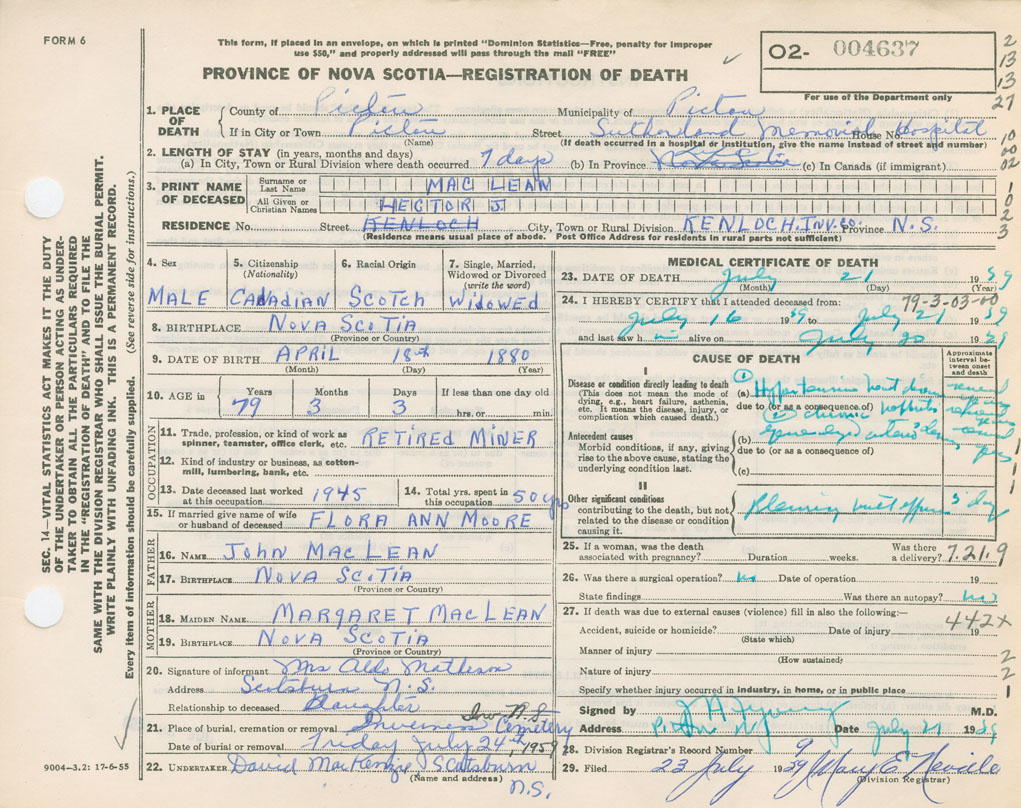 FORM 6
This form, if placed in an envelope, on which is printed "Dominion Statistics—Free, penalty for improper
use $50," and properly addressed will pass through the mail "FREE"
PROVINCE OF NOVA SCOTIA—REGISTRATION OF DEATH
02- 004637
For use of the Department only
2
13
13
27
10
00
02
1
0
2
3
SEC. 14—VITAL STATISTICS ACT MAKES IT THE DUTY
OF THE UNDERTAKER OR PERSON ACTING AS UNDER-
TAKER TO OBTAIN ALL THE PARTICULARS REQUIRED
IN THE "REGISTRATION OF DEATH" AND TO FILE THE
SAME WITH THE DIVISION REGISTRAR WHO SHALL ISSUE THE BURIAL PERMIT.
WRITE PLAINLY WITH UNFADING INK. THIS IS A PERMANENT RECORD.
Every item of information should be carefully supplied. (See reverse side for instructions.)
1. PLACE OF DEATH
County of Pictou Municipality of Pictou
If in City or Town Pictou Street Sutherland Memorial House No. Hospital
(Name) (If death occurred in a hospital or institution, give the name instead of street and number)
2. LENGTH OF STAY (in years, months and days)
(a) In City, Town or Rural Division where death occurred 7 days (b) In Province Nova Scotia (c) In Canada (if immigrant)
3. PRINT NAME OF DECEASED
Surname or Last Name MAC LEAN
All Given or Christian Names HECTOR J.
RESIDENCE No. Street KENLOCH City, Town or Rural Division KENLOCH. INV. CO. Province N.S.
(Residence means usual place of abode. Post Office Address for residents in rural parts not sufficient)
4. Sex MALE
5. Citizenship (Nationality) CANADIAN
6. Racial Origin SCOTCH
7. Single, Married, Widowed or Divorced (write the word) WIDOWED
8. BIRTHPLACE NOVA SCOTIA
(Province or Country)
9. DATE OF BIRTH APRIL 18th 1880
(Month) (Day) (Year)
10. AGE in Years 79 Months 3 Days 3 If less than one day old hrs. or min.
OCCUPATION
11. Trade, profession, or kind of work as spinner, teamster, office clerk, etc. RETIRED MINER
12. Kind of industry or business, as cotton-mill, lumbering, bank, etc.
13. Date deceased last worked at this occupation 1945
14. Total yrs. spent in this occupation 50 yrs
15. If married give name of wife or husband of deceased FLORA ANN MOORE
FATHER
16. NAME JOHN MACLEAN
17. BIRTHPLACE NOVA SCOTIA
(Province or Country)
MOTHER
18. MAIDEN NAME MARGARET MACLEAN
19. BIRTHPLACE NOVA SCOTIA
(Province or Country)
20. Signature of informant Mrs Matheson
Address Scotsburn N.S.
Relationship to deceased Daughter
21. Place of burial, cremation or removal Inverness Cemetery Inv N.S
Date of burial or removal Friday July 24th, 1959
22. UNDERTAKER David MacKenzie Scotsburn
(Name and address) N.S.
9004-3.2: 17-6-55
MEDICAL CERTIFICATE OF DEATH
23. DATE OF DEATH July 21 1959
(Month) (Day) (Year)
24. I HEREBY CERTIFY that I attended deceased from: 79-3-03-00
July 16 1959 to July 21 1959
and last saw h m alive on July 20 19
CAUSE OF DEATH
Approximate interval between onset and death
I
Disease or condition directly leading to death
(This does not mean the mode of dying, e.g., heart failure, asthenia, etc. It means the disease, injury, or complication which caused death.)
(a) Hypertensive heart
due to (or as a consequence of)
chronic
Antecedent causes
Morbid conditions, if any, giving rise to the above cause, stating the underlying condition last.
(b)
due to (or as a consequence of)
(c)
II
Other significant conditions
contributing to the death, but not related to the disease or condition causing it.
3 day
25. If a woman, was the death associated with pregnancy? Duration weeks. Was there a delivery? 7.21.9
26. Was there a surgical operation? no Date of operation 19
State findings Was there an autopsy? no
27. If death was due to external causes (violence) fill in also the following:—
442X
Accident, suicide or homicide? Date of injury 19
(State which)
Manner of injury 2
(How sustained)
Nature of injury 2
Specify whether injury occurred in industry, in home, or in public place 1
Signed by M.D.
Address Pictou NS Date July 21 1959
28. Division Registrar's Record Number 9
29. Filed 23 July 1959 Mary E. Neville
(Division Registrar)